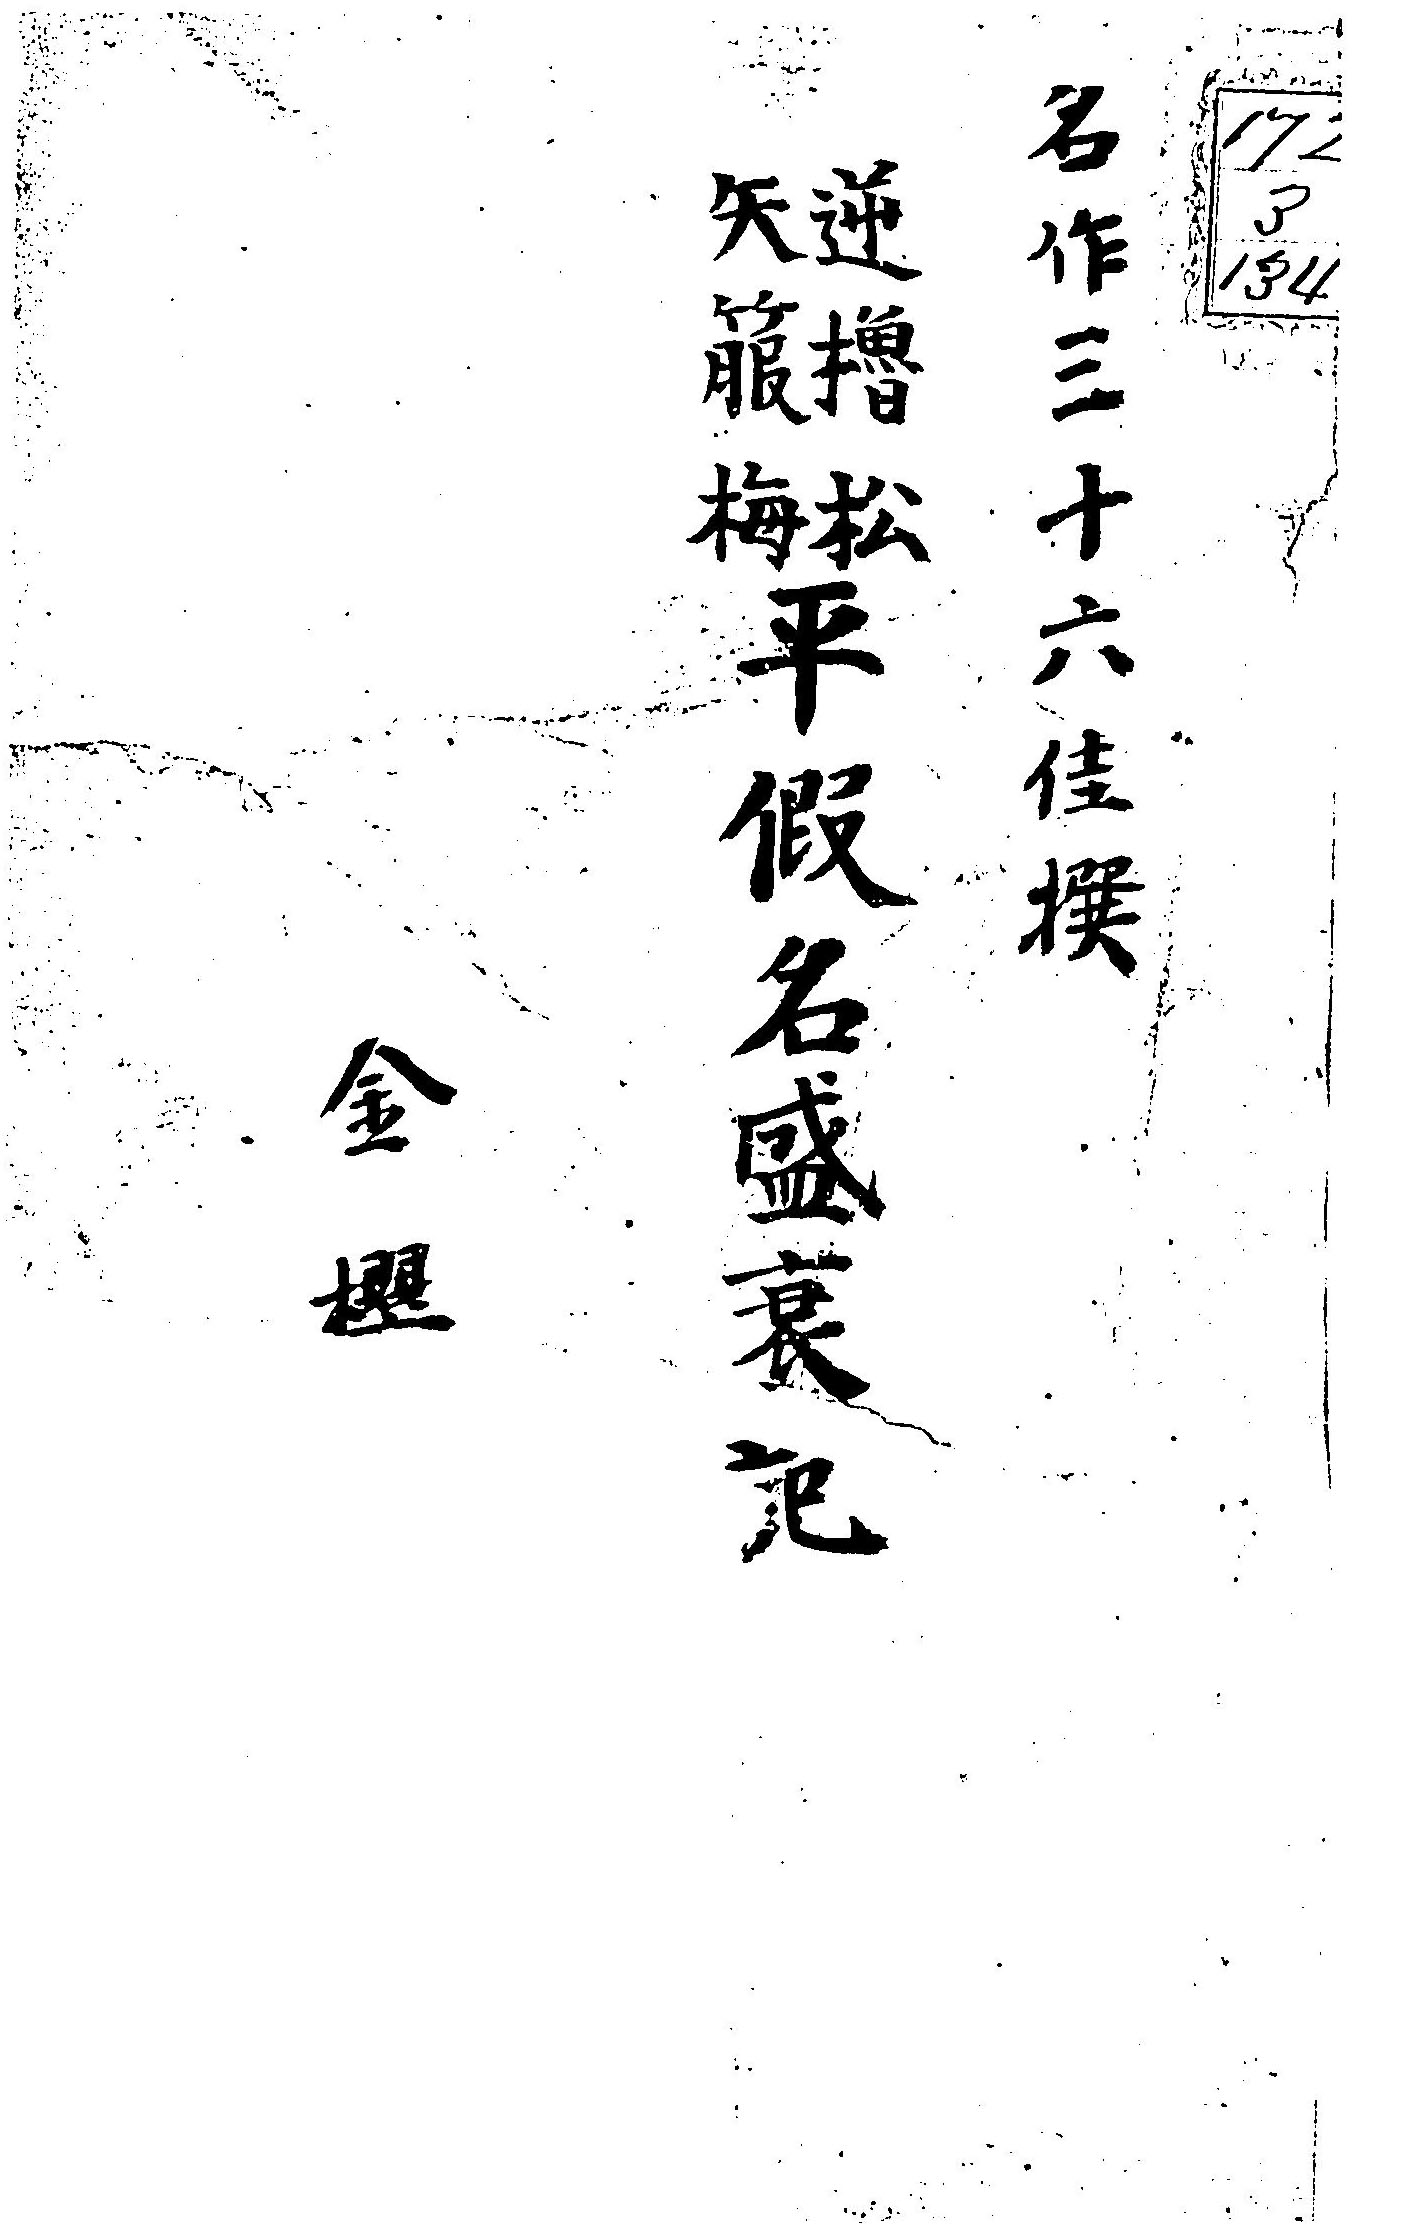 名作三十六佳撰
逆櫓松
矢箙梅
平假名盛衰記
金櫻
172
3
134